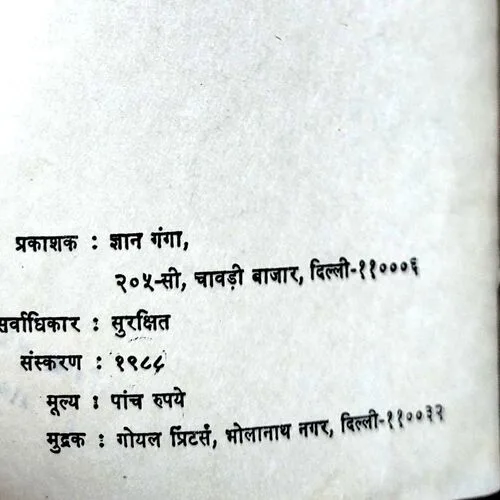 प्रकाशक : ज्ञान गंगा,
२०५-सी, चावड़ी बाजार, दिल्ली-११०००६
सर्वाधिकार : सुरक्षित
संस्करण : १९८८
मूल्य : पांच रुपये
मुद्रक : गोयल प्रिंटर्स, भोलानाथ नगर, दिल्ली-११००३२